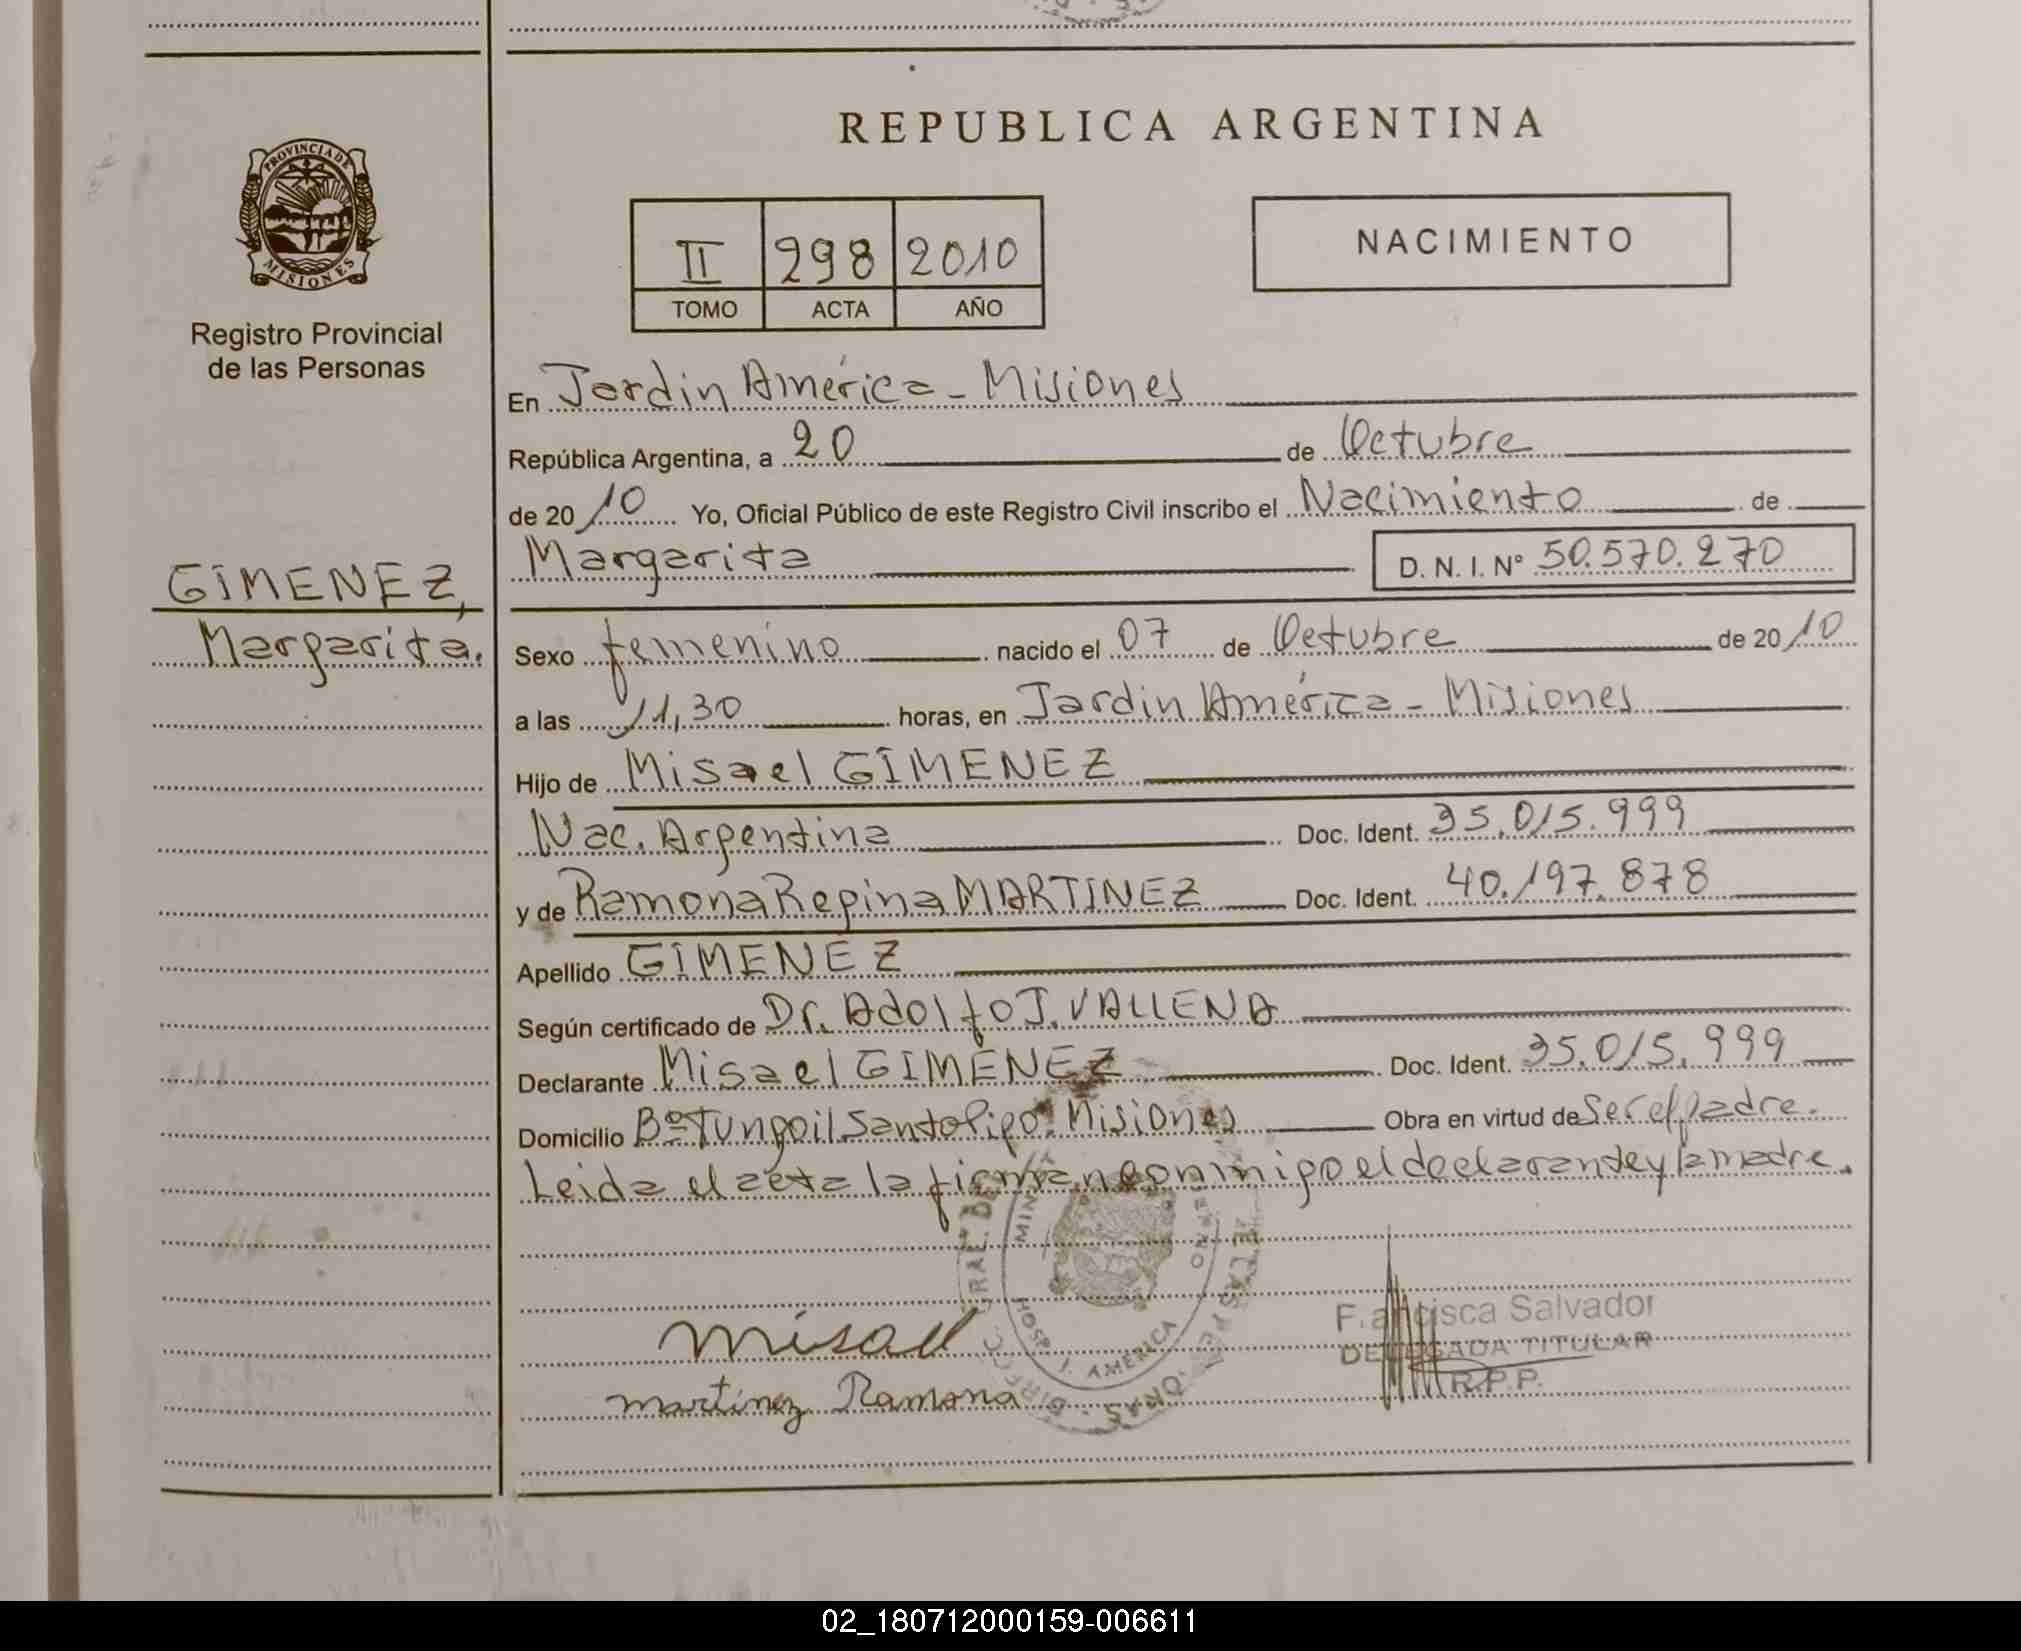 PROVINCIA DE
MISIONES
Registro Provincial
de las Personas
GIMENEZ,
Margarita.
REPUBLICA ARGENTINA
II 298 2010
TOMO ACTA AÑO
NACIMIENTO
En Jardin América - Misiones
República Argentina, a 20 de Octubre
de 2010 Yo, Oficial Público de este Registro Civil inscribo el Nacimiento de
Margarita D. N. I. Nº 50.570.270
Sexo femenino nacido el 07 de Octubre de 2010
a las 11,30 horas, en Jardin América - Misiones
Hijo de Misael GIMENEZ
Nac. Argentina Doc. Ident. 35.015.999
y de Ramona Regina MARTINEZ Doc. Ident. 40.197.878
Apellido GIMENEZ
Según certificado de Dr. Adolfo J. VALLENA
Declarante Misael GIMENEZ Doc. Ident. 35.015.999
Domicilio Bº Tungoil Santo Pipo. Misiones Obra en virtud de Ser el padre.
Leida el acta la firman conmigo el declarante y la madre.
HOSP. J. AMERICA
misael
martinez Ramona
Francisca Salvador
DELEGADA TITULAR
R.P.P.
02_180712000159-006611